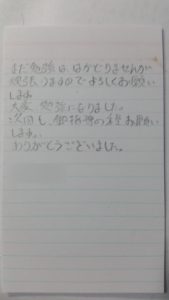 まだ勉強は、はかどりませんが
頑張りますのでよろしくお願い
します
大変、勉強になりました。
次回も、御指導の程お願い
します。
ありがとうございました。